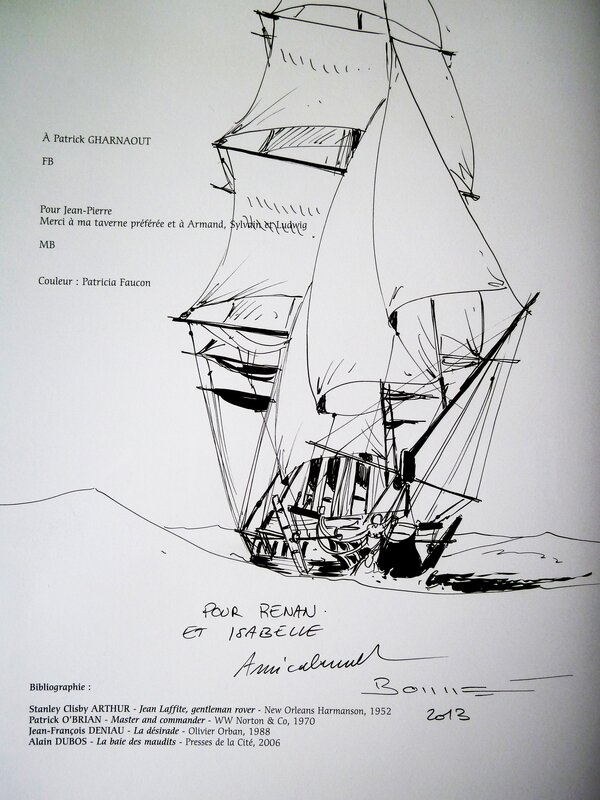 À Patrick GHARNAOUT
FB
Pour Jean-Pierre
Merci à ma taverne préférée et à Armand, Sylvain et Ludwig
MB
Couleur : Patricia Faucon
POUR RENAN.
ET ISABELLE
Amicalement
BONNET
2013
Bibliographie :
Stanley Clisby ARTHUR - Jean Laffite, gentleman rover - New Orleans Harmanson, 1952
Patrick O'BRIAN - Master and commander - WW Norton & Co, 1970
Jean-François DENIAU - La désirade - Olivier Orban, 1988
Alain DUBOS - La baie des maudits - Presses de la Cité, 2006